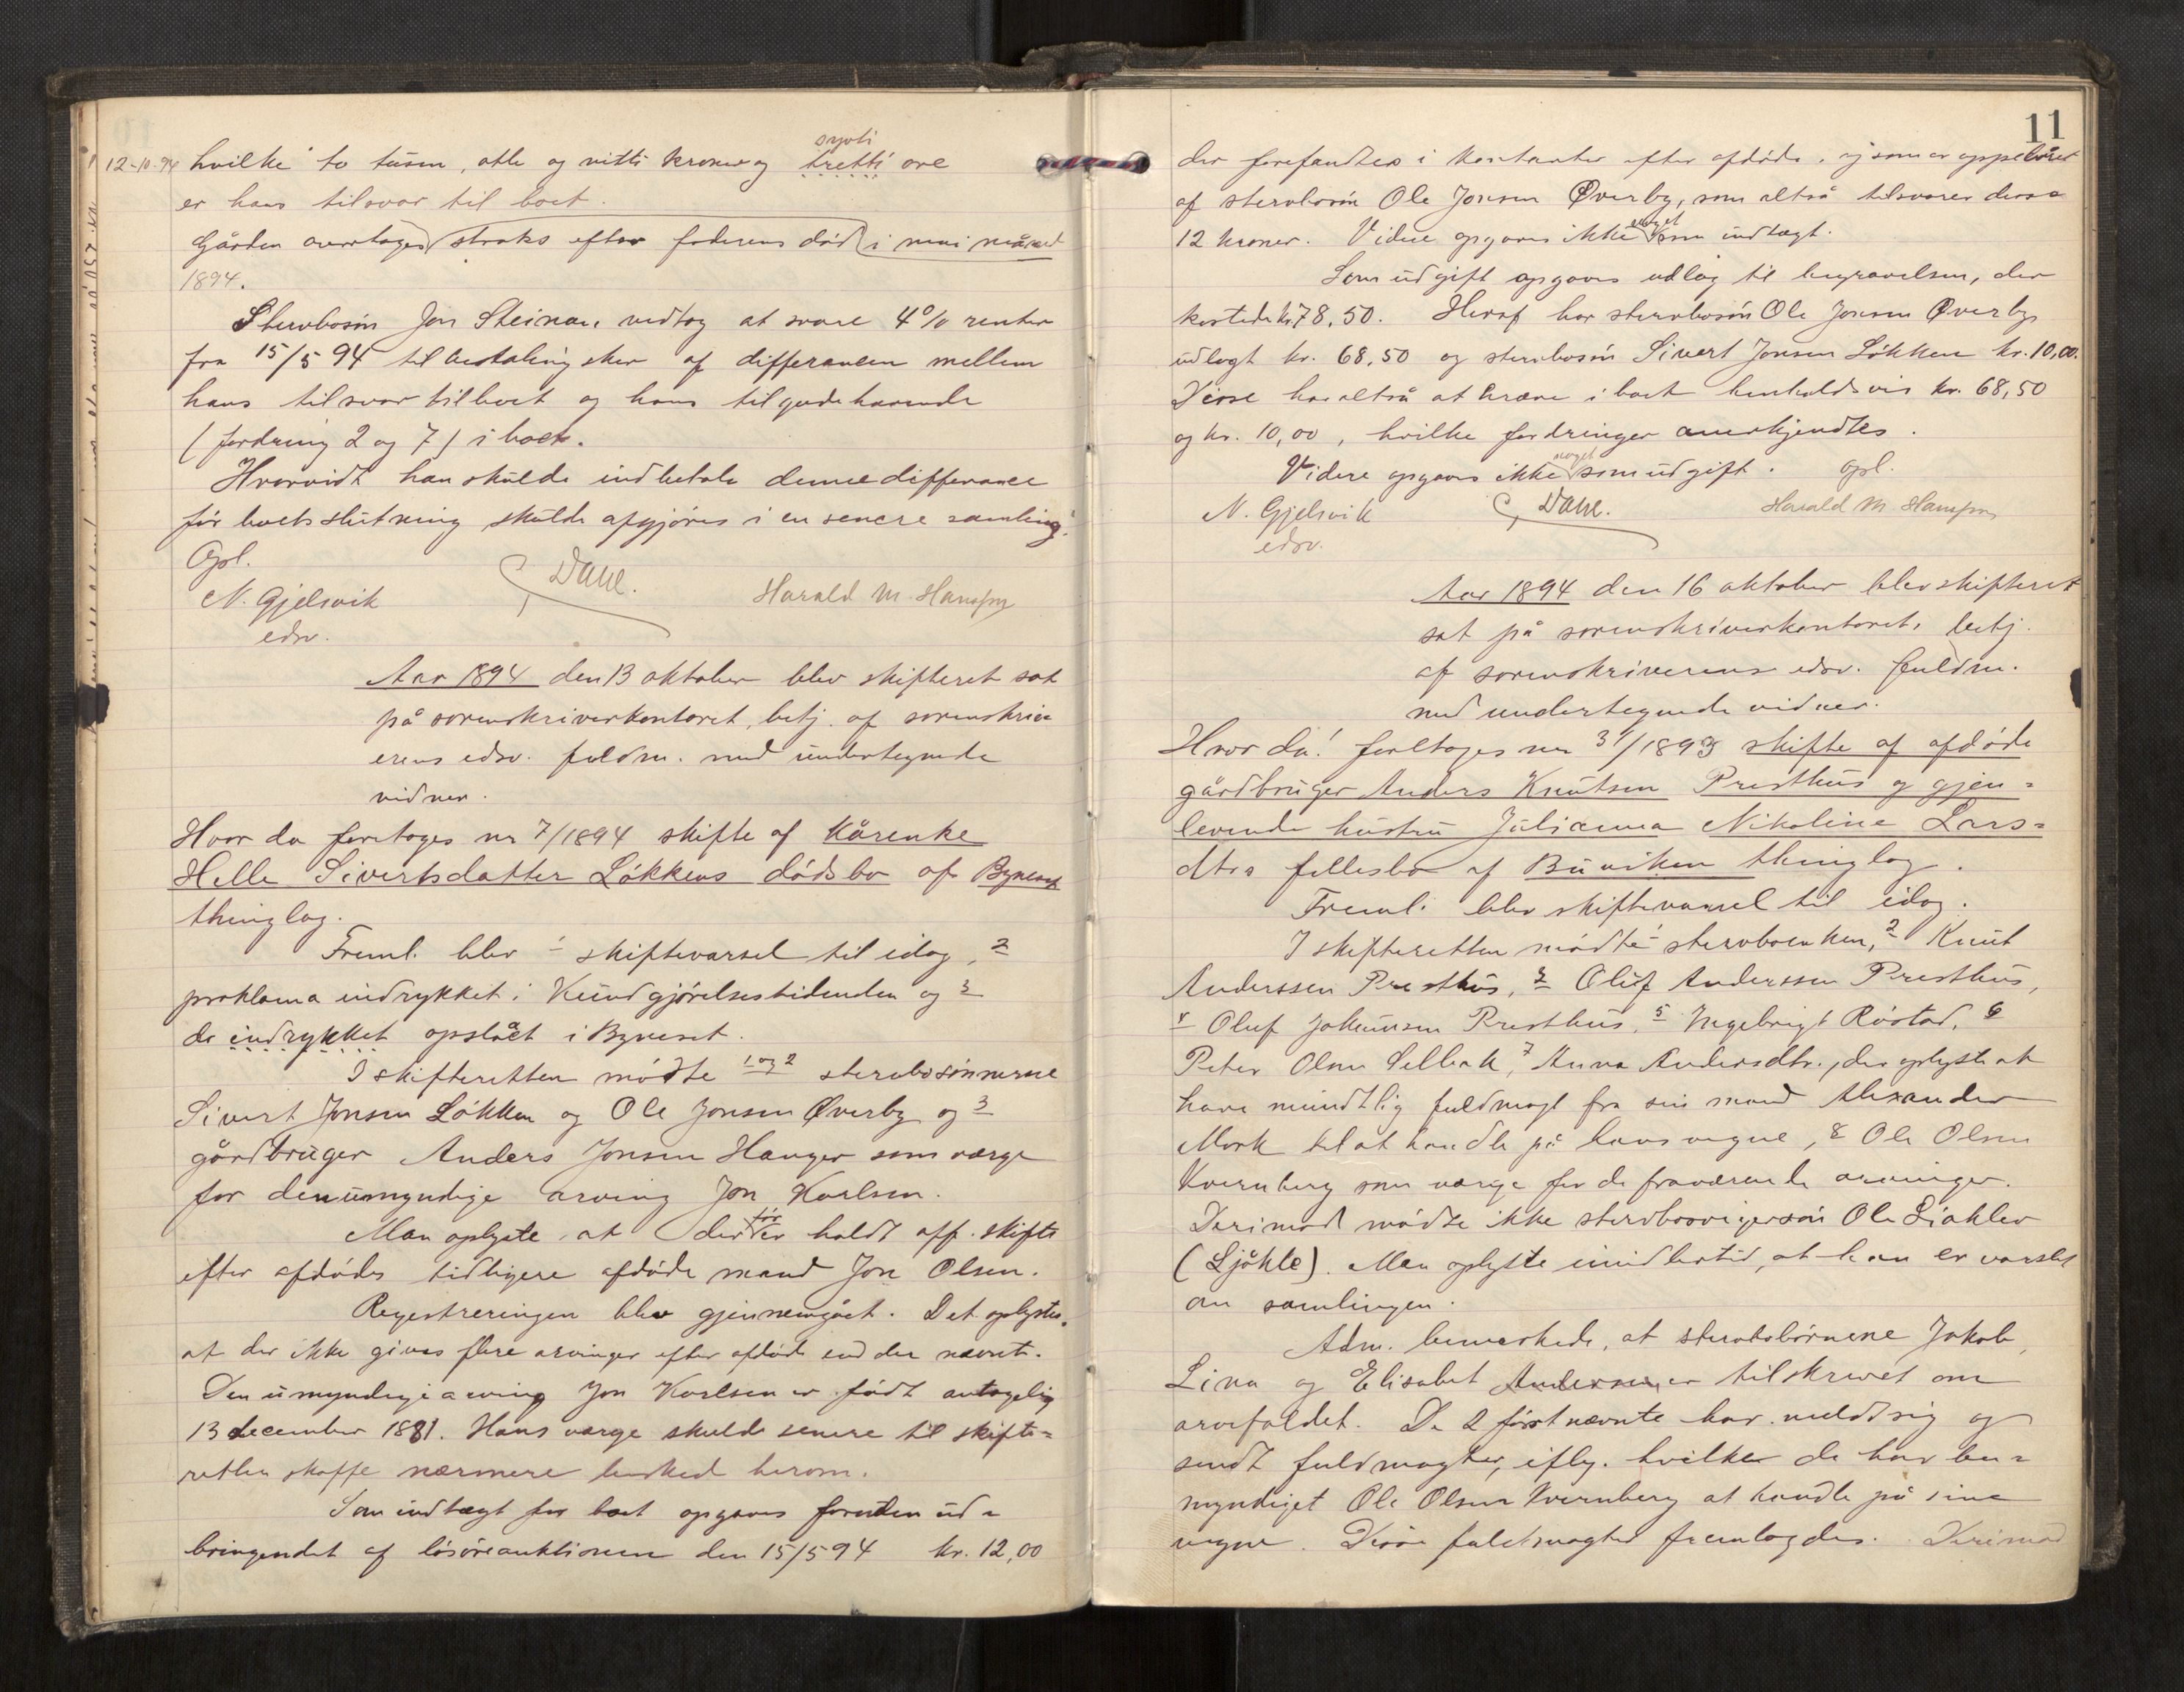 12-10-94 hvilke to tusen, otte og nitti kroner og tretti øre
syvti
er hans tilsvar til boet.
Gården overtoges straks efter faderens død i mai måned
1894.
Stervbosøn Jon Steinan vedtog at svare 4% renter
fra 15/5 94 til betaling sker af differancen mellem
hans tilsvar til boet og hans tilgodehavende
(fordring 2 og 7) i boet.
Hvorvidt han skulde indbetale denne differance
før boets slutning skulde afgjøres i en senere samling.
Opl.
N. Gjelsvik Dahl. Harald M. Hansen
edsv.
Aar 1894 den 13 oktober blev skifteret sat
på sorenskriverkontoret, betj. af sorenskriv-
erens edsv. fuldm. med undertegnede
vidner.
Hvor da foretoges nr 7/1894 skifte af Kårenke
Helle Sivertsdatter Løkkens dødsbo af Bynesset
thinglag.
Freml. blev 1 skiftevarsel til idag, 2
proklama indrykket i Kundgjørelsestidenden og 3
do indrykket opslået i Bynesset.
I skifteretten mødte 1 og 2 stervbosønnerne
Sivert Jonsen Løkken og Ole Jonsen Øverby og 3
gårdbruger Anders Jonsen Hanger som værge
for den umyndige arving Jon Karlsen.
Man oplyste at der før er holdt off. skifte
efter afdødes tidligere afdøde mand Jon Olsen.
Registreringen blev gjennemgået. Det oplystes,
at der ikke gives flere arvinger efter afdøde end der nævnt.
Den umyndige arving Jon Karlsen er født antagelig
13 december 1881. Hans værge skulde senere til skifte-
retten skaffe nærmere besked herom.
Som indtægt for boet opgaves foruden ud-
bringendet af løsøreauktionen den 15/5 94 kr. 12,00
11
der forefandtes i kontanter efter afdøde, og som er oppebåret
af stervbosøn Ole Jonsen Øverby, som altså tilsvarer disse
12 kroner. Videre opgaves ikke noget som indtægt.
Som udgift opgaves udlæg til begravelsen, der
kostede kr. 78,50. Heraf har stervbosøn Ole Jonsen Øverby
udlagt kr. 68,50 og stervbosøn Sivert Jonsen Løkken kr. 10,00.
Disse har altså at kræve i boet henholdsvis kr. 68,50
og kr. 10,00, hvilke fordringer anerkjendtes.
Videre opgaves ikke noget som udgift. Opl.
N. Gjelsvik Dahl. Harald M. Hansen
edsv.
Aar 1894 den 16 oktober blev skifteret
sat på sorenskriverkontoret, betj.
af sorenskriverens edsv. fuldm.
med undertegnede vidner.
Hvor da! foretoges nr 31/1893 skifte af afdøde
gårdbruger Anders Knutsen Presthus og gjen-
levende hustru Julianna Nikoline Lars-
dtrs fellesbo af Buviken thinglag.
Freml. blev skiftevarsel til idag.
I skifteretten mødte 1 stervboenken, 2 Knut
Anderssen Presthus, 3 Oluf Anderssen Presthus,
4 Oluf Johansen Presthus, 5 Ingebrigt Røstad, 6
Peter Olsen Selbæk, 7 Anna Andersdtr., der oplyste at
have mundtlig fuldmagt fra sin mand Alexander
Mork til at handle på hans vegne, 8 Ole Olsen
Kvernberg som værge for de fraværende arvinger.
Derimod mødte ikke stervbosvigersøn Ole Liaklev
(Ljåkle). Man oplyste imidlertid, at han er varslet
om samlingen.
Adm. bemerkede, at stervbobørnene Jakob,
Lina og Elisabet Andersen er tilskrevet om
arvefaldet. De 2 førstnævnte har meldt sig og
sendt fuldmagter, ifølg. hvilke de har be-
myndiget Ole Olsen Kvernberg at handle på sine
vegne. Disse fuldmagter fremlagdes. Derimod